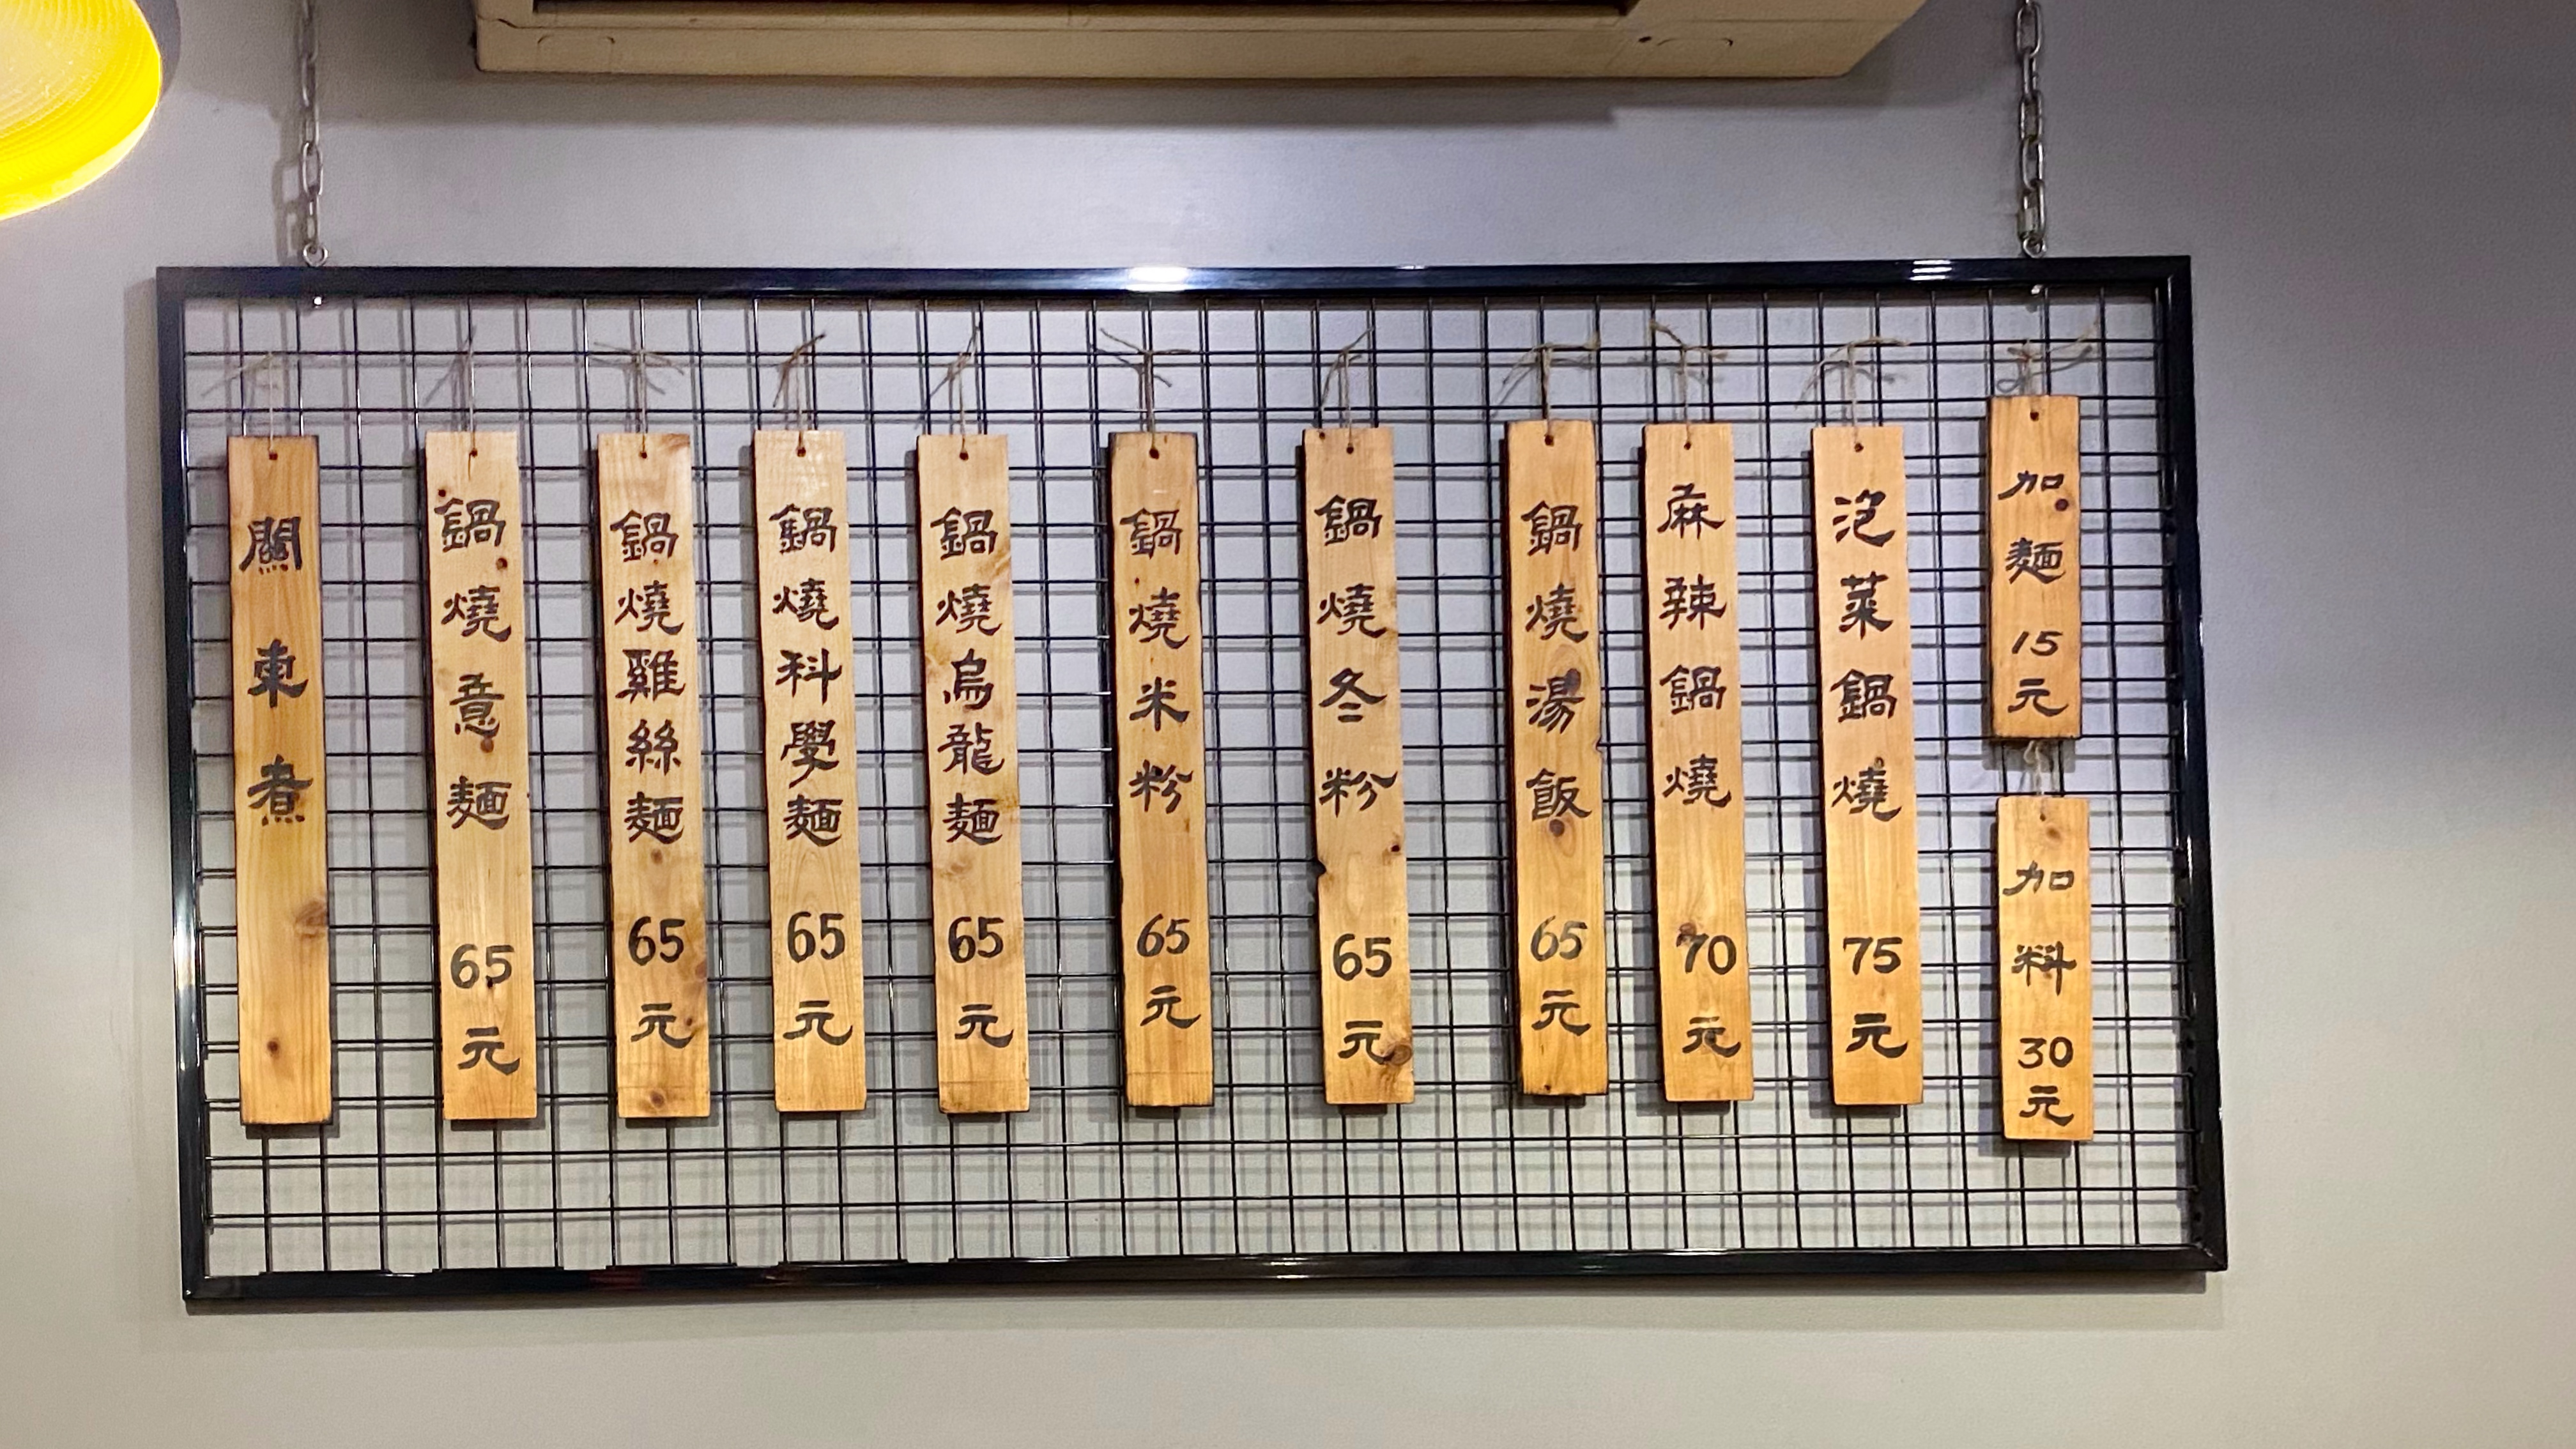 關東煮
鍋燒意麵 65元
鍋燒雞絲麵 65元
鍋燒科學麵 65元
鍋燒烏龍麵 65元
鍋燒米粉 65元
鍋燒冬粉 65元
鍋燒湯飯 65元
麻辣鍋燒 70元
泡菜鍋燒 75元
加麵 15元
加料 30元